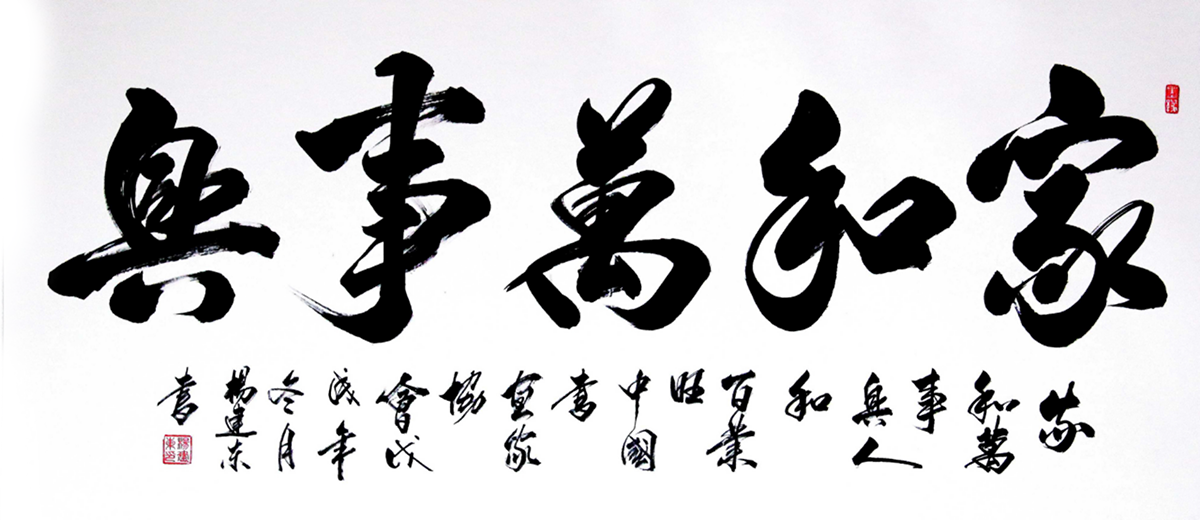 家和萬事興
家
和萬
事
興人
和
百業
旺
中國
書
畫家
協
會戊
戌年
冬月
楊建东
書